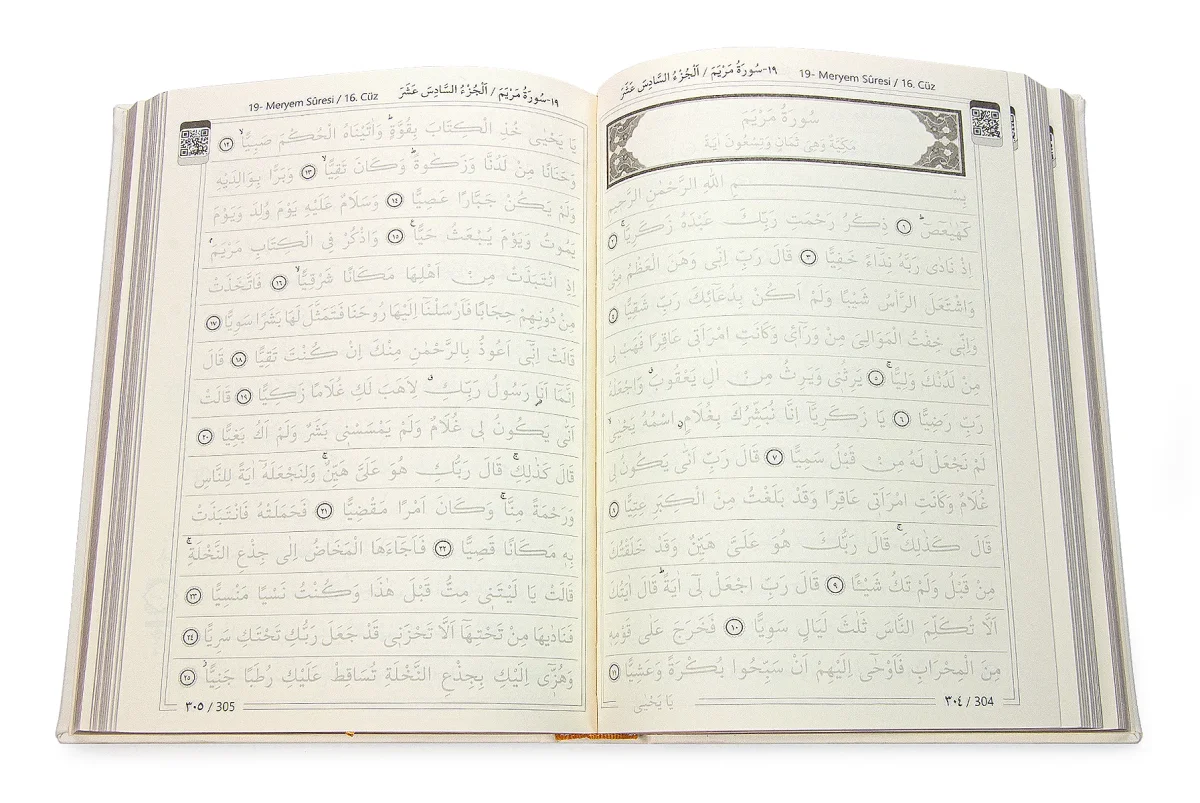 ١٩-سُورَةُ مَرْيَمَ / اَلْجُزْءُ السَّادِسَ عَشَرَ 19- Meryem Sûresi / 16. Cüz
سُورَةُ مَرْيَمَ
مَكِّيَّةٌ وَهِيَ ثَمَانٍ وَتِسْعُونَ اٰيَةً
بِسْــــــــمِ اللّٰهِ الرَّحْمٰنِ الرَّحِيمِ
كٓهٰيٰعٓصٓۜ ﴿١﴾ ذِكْرُ رَحْمَتِ رَبِّكَ عَبْدَهُ زَكَرِيَّاۚ ﴿٢﴾
اِذْ نَادٰى رَبَّهُ نِدَٓاءً خَفِيًّا ﴿٣﴾ قَالَ رَبِّ اِنّٖى وَهَنَ الْعَظْمُ مِنّٖى
وَاشْتَعَلَ الرَّاْسُ شَيْبًا وَلَمْ اَكُنْ بِدُعَٓائِكَ رَبِّ شَقِيًّا ﴿٤﴾
وَاِنّٖى خِفْتُ الْمَوَالِيَ مِنْ وَرَٓاءٖى وَكَانَتِ امْرَاَتٖى عَاقِرًا فَهَبْ لٖى
مِنْ لَدُنْكَ وَلِيًّاۙ ﴿٥﴾ يَرِثُنٖى وَيَرِثُ مِنْ اٰلِ يَعْقُوبَۗ وَاجْعَلْهُ
رَبِّ رَضِيًّا ﴿٦﴾ يَا زَكَرِيَّٓا اِنَّا نُبَشِّرُكَ بِغُلَامٍۨ اسْمُهُ يَحْيٰىۙ
لَمْ نَجْعَلْ لَهُ مِنْ قَبْلُ سَمِيًّا ﴿٧﴾ قَالَ رَبِّ اَنّٰى يَكُونُ لٖى
غُلَامٌ وَكَانَتِ امْرَاَتٖى عَاقِرًا وَقَدْ بَلَغْتُ مِنَ الْكِبَرِ عِتِيًّا ﴿٨﴾
قَالَ كَذٰلِكَۚ قَالَ رَبُّكَ هُوَ عَلَيَّ هَيِّنٌ وَقَدْ خَلَقْتُكَ
مِنْ قَبْلُ وَلَمْ تَكُ شَيْـًٔا ﴿٩﴾ قَالَ رَبِّ اجْعَلْ لٖٓى اٰيَةًۜ قَالَ اٰيَتُكَ
اَلَّا تُكَلِّمَ النَّاسَ ثَلٰثَ لَيَالٍ سَوِيًّا ﴿١٠﴾ فَخَرَجَ عَلٰى قَوْمِهٖ
مِنَ الْمِحْرَابِ فَاَوْحٰٓى اِلَيْهِمْ اَنْ سَبِّحُوا بُكْرَةً وَعَشِيًّا ﴿١١﴾
يَا يَحْيٰى
٣٠٤ / 304
19- Meryem Sûresi / 16. Cüz ١٩-سُورَةُ مَرْيَمَ / اَلْجُزْءُ السَّادِسَ عَشَرَ
يَا يَحْيٰى خُذِ الْكِتَابَ بِقُوَّةٍۜ وَاٰتَيْنَاهُ الْحُكْمَ صَبِيًّاۙ ﴿١٢﴾
وَحَنَانًا مِنْ لَدُنَّا وَزَكٰوةًۜ وَكَانَ تَقِيًّاۙ ﴿١٣﴾ وَبَرًّا بِوَالِدَيْهِ
وَلَمْ يَكُنْ جَبَّارًا عَصِيًّا ﴿١٤﴾ وَسَلَامٌ عَلَيْهِ يَوْمَ وُلِدَ وَيَوْمَ
يَمُوتُ وَيَوْمَ يُبْعَثُ حَيًّاࣖ ﴿١٥﴾ وَاذْكُرْ فِى الْكِتَابِ مَرْيَمَۢ
اِذِ انْتَبَذَتْ مِنْ اَهْلِهَا مَكَانًا شَرْقِيًّاۙ ﴿١٦﴾ فَاتَّخَذَتْ
مِنْ دُونِهِمْ حِجَابًا فَاَرْسَلْنَٓا اِلَيْهَا رُوحَنَا فَتَمَثَّلَ لَهَا بَشَرًا سَوِيًّا ﴿١٧﴾
قَالَتْ اِنّٖٓى اَعُوذُ بِالرَّحْمٰنِ مِنْكَ اِنْ كُنْتَ تَقِيًّا ﴿١٨﴾ قَالَ
اِنَّمَٓا اَنَا۬ رَسُولُ رَبِّكِۗ لِاَهَبَ لَكِ غُلَامًا زَكِيًّا ﴿١٩﴾ قَالَتْ
اَنّٰى يَكُونُ لٖى غُلَامٌ وَلَمْ يَمْسَسْنٖى بَشَرٌ وَلَمْ اَكُ بَغِيًّا ﴿٢٠﴾
قَالَ كَذٰلِكِۚ قَالَ رَبُّكِ هُوَ عَلَيَّ هَيِّنٌۚ وَلِنَجْعَلَهُٓ اٰيَةً لِلنَّاسِ
وَرَحْمَةً مِنَّاۚ وَكَانَ اَمْرًا مَقْضِيًّا ﴿٢١﴾ فَحَمَلَتْهُ فَانْتَبَذَتْ
بِهٖ مَكَانًا قَصِيًّا ﴿٢٢﴾ فَاَجَٓاءَهَا الْمَخَاضُ اِلٰى جِذْعِ النَّخْلَةِۚ
قَالَتْ يَا لَيْتَنٖى مِتُّ قَبْلَ هٰذَا وَكُنْتُ نَسْيًا مَنْسِيًّا ﴿٢٣﴾
فَنَادٰيهَا مِنْ تَحْتِهَٓا اَلَّا تَحْزَنٖى قَدْ جَعَلَ رَبُّكِ تَحْتَكِ سَرِيًّا ﴿٢٤﴾
وَهُزّٖٓى اِلَيْكِ بِجِذْعِ النَّخْلَةِ تُسَاقِطْ عَلَيْكِ رُطَبًا جَنِيًّاۘ ﴿٢٥﴾
٣٠٥ / 305